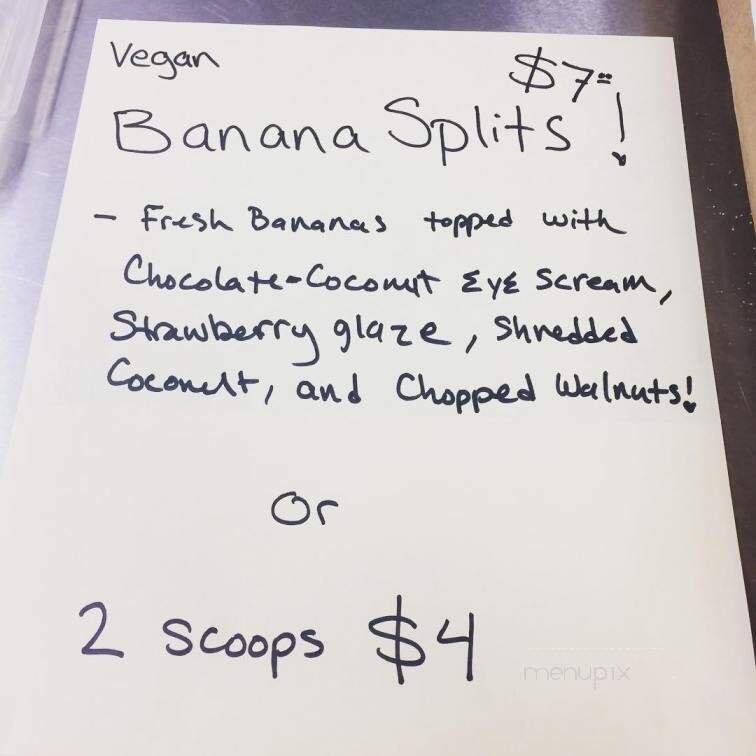 Vegan
$7=
Banana Splits!
- Fresh Bananas topped with
Chocolate-Coconut Eye Scream,
Strawberry glaze, Shredded
Coconut, and Chopped Walnuts!
Or
2 scoops $4
menupix